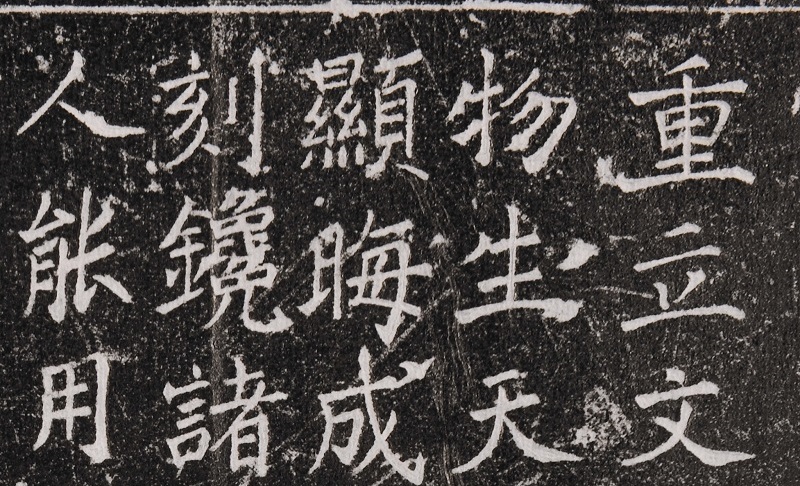 重立文
物生天
顯晦成
刻鑱諸
人能用